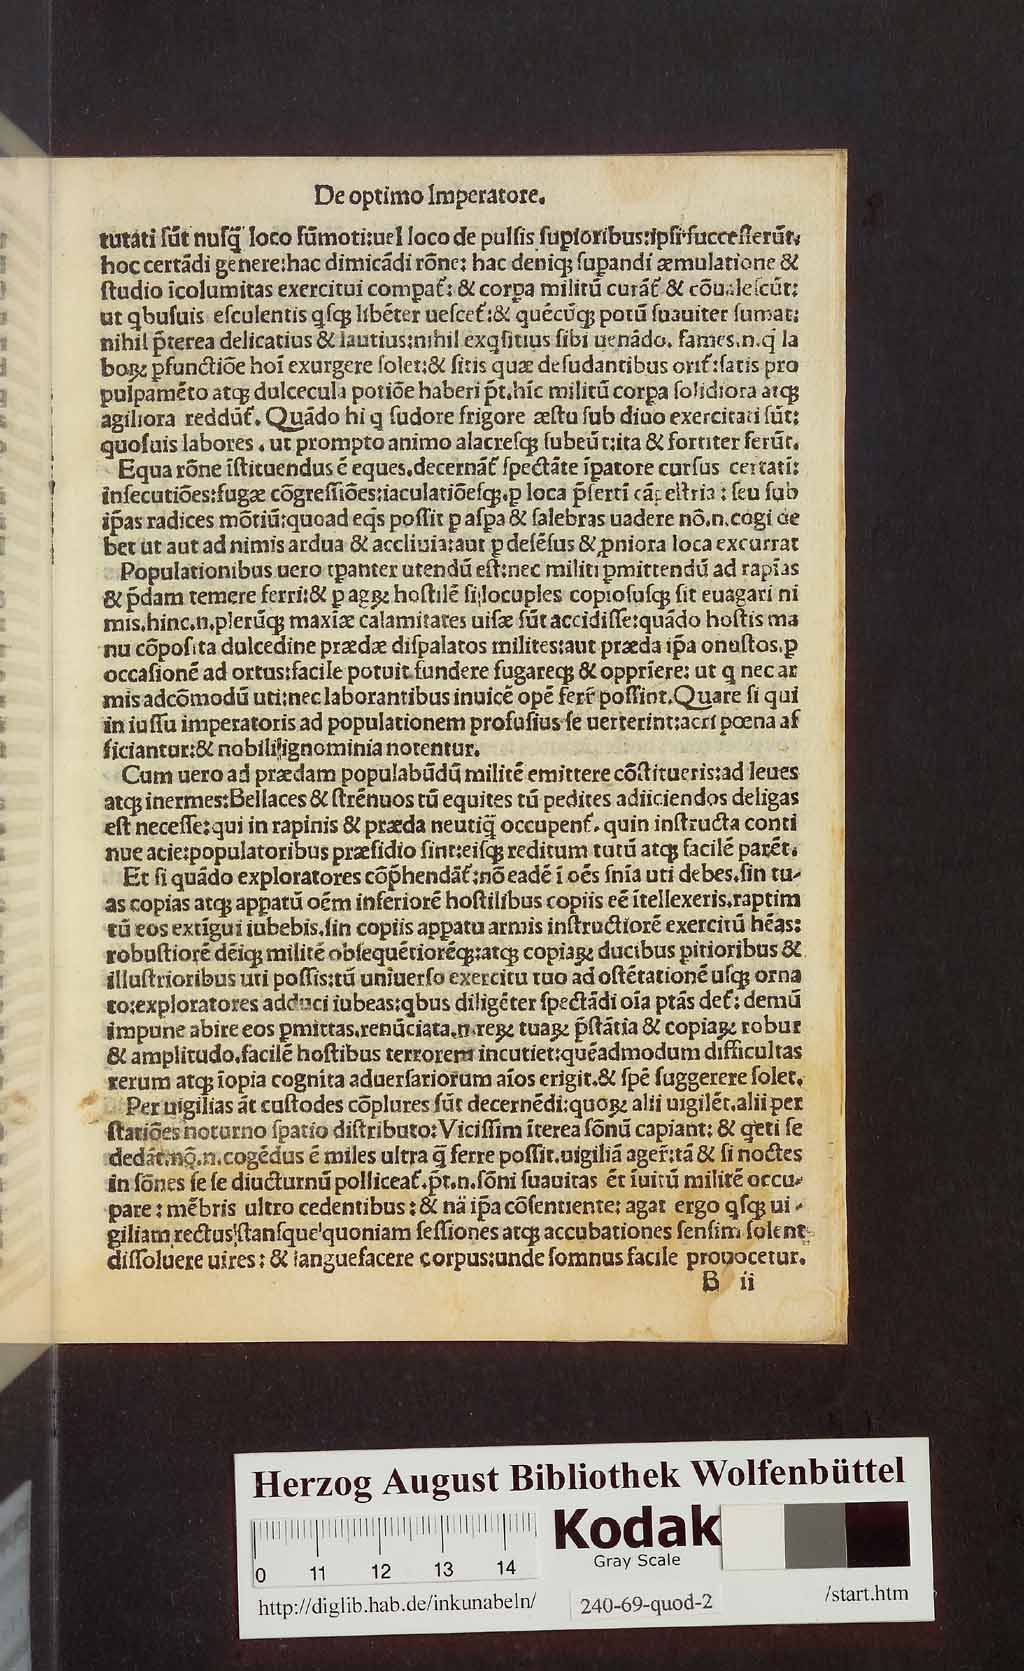 De optimo Imperatore.
tutati sūt nusq̄ loco sūmoti:uel loco de pulsis supioribus:ipsi successerūt.
hoc certādi genere:hac dimicādi rōne: hac deniqꝫ supandi æmulatione &
studio īcolumitas exercitui compat̄: & corpa militū curāt̄ & cōualescūt:
ut qbusuis esculentis qsqꝫ libēter uescet̄:& quēcūqꝫ potū suauiter sumat:
nihil p̄terea delicatius & lautius:nihil exqsitius sibi uenādo. fames.n.q̄ la
boꝝ pfunctiōe hoī exurgere solet:& sitis quæ desudantibus orit̄:satis pro
pulpamēto atqꝫ dulcecula potiōe haberi p̄t.hīc militū corpa solidiora atqꝫ
agiliora reddūt̄. Quādo hi q sudore frigore æstu sub diuo exercitati sūt:
quosuis labores . ut prompto animo alacresqꝫ subeūt:ita & fortiter ferūt.
Equa rōne īstituendus ē eques.decernāt̄ spectāte īpatore cursus certatī:
insecutiōes:fugæ cōgressiōes:iaculatiōesqꝫ.p loca p̄sertī cāpestria : seu sub
ip̄as radices mōtiū:quoad eqs possit p aspa & salebras uadere nō.n.cogi de
bet ut aut ad nimis ardua & accliuia:aut p desēsus & pniora loca excurrat
Populationibus uero tpanter utendū est:nec militi pmittendū ad rapīas
& p̄dam temere ferri:& p agꝝ hostilē si locuples copiosusqꝫ sit euagari ni
mis.hinc.n.plerūqꝫ maxīæ calamitates uisæ sūt accidisse:quādo hostis ma
nu cōposita dulcedine prædæ dispalatos milites:aut præda ip̄a onustos.p
occasionē ad ortus:facile potuit fundere fugareqꝫ & opprīere: ut q nec ar
mis adcōmodū uti:nec laborantibus inuicē opē ferr̄ possint.Quare si qui
in iussu imperatoris ad populationem profusius se uerterint:acri pœna af
ficiantur:& nobili ignominia notentur.
Cum uero ad prædam populabūdū militē emittere cōstitueris:ad leues
atqꝫ inermes:Bellaces & strēnuos tū equites tū pedites adiiciendos deligas
est necesse:qui in rapinis & præda neutiq̄ occupent̄. quin instructa conti
nue acie:populatoribus præsidio sint:eisqꝫ reditum tutū atqꝫ facilē parēt.
Et si quādo exploratores cōp̄hendāt̄:nō eadē ī oēs snīa uti debes.sin tu-
as copias atqꝫ appatū oēm inferiorē hostilibus copiis eē ītellexeris.raptim
tū eos extīgui iubebis.sin copiis appatu armis instructiorē exercitū hēas:
robustiorē dēiqꝫ militē obsequētiorēqꝫ:atqꝫ copiaꝝ ducibus pitioribus &
illustrioribus uti possis:tū uniuerso exercitu tuo ad ostētationē usqꝫ orna
to:exploratores adduci iubeas:qbus diligēter spectādi oīa ptās det̄: demū
impune abire eos pmittas.renūciata.n.reꝝ tuaꝝ p̄stātia & copiaꝝ robur
& amplitudo.facilē hostibus terrorem incutiet:quēadmodum difficultas
rerum atqꝫ īopia cognita aduersariorum aīos erigit.& spē suggerere solet.
Per uigilias āt custodes cōplures sūt decernēdi:quoꝝ alii uigilēt.alii per
statiōes noturno spatio distributo:Vicissim īterea sōnū capiant: & qeti se
dedāt.nō.n.cogēdus ē miles ultra q̄ ferre possit.uigiliā ager̄:tā & si noctes
in sōnes se se diucturnū polliceat̄.p̄t.n.sōni suauitas ēt īuitū militē occu-
pare : mēbris ultro cedentibus : & nā ip̄a cōsentiente: agat ergo qsqꝫ ui -
giliam rectus stansque quoniam sessiones atqꝫ accubationes sensim solent
dissoluere uires : & languefacere corpus:unde somnus facile prouocetur.
B ii
Herzog August Bibliothek Wolfenbüttel
0 11 12 13 14
Kodak
Gray Scale
http://diglib.hab.de/inkunabeln/
240-69-quod-2
/start.htm